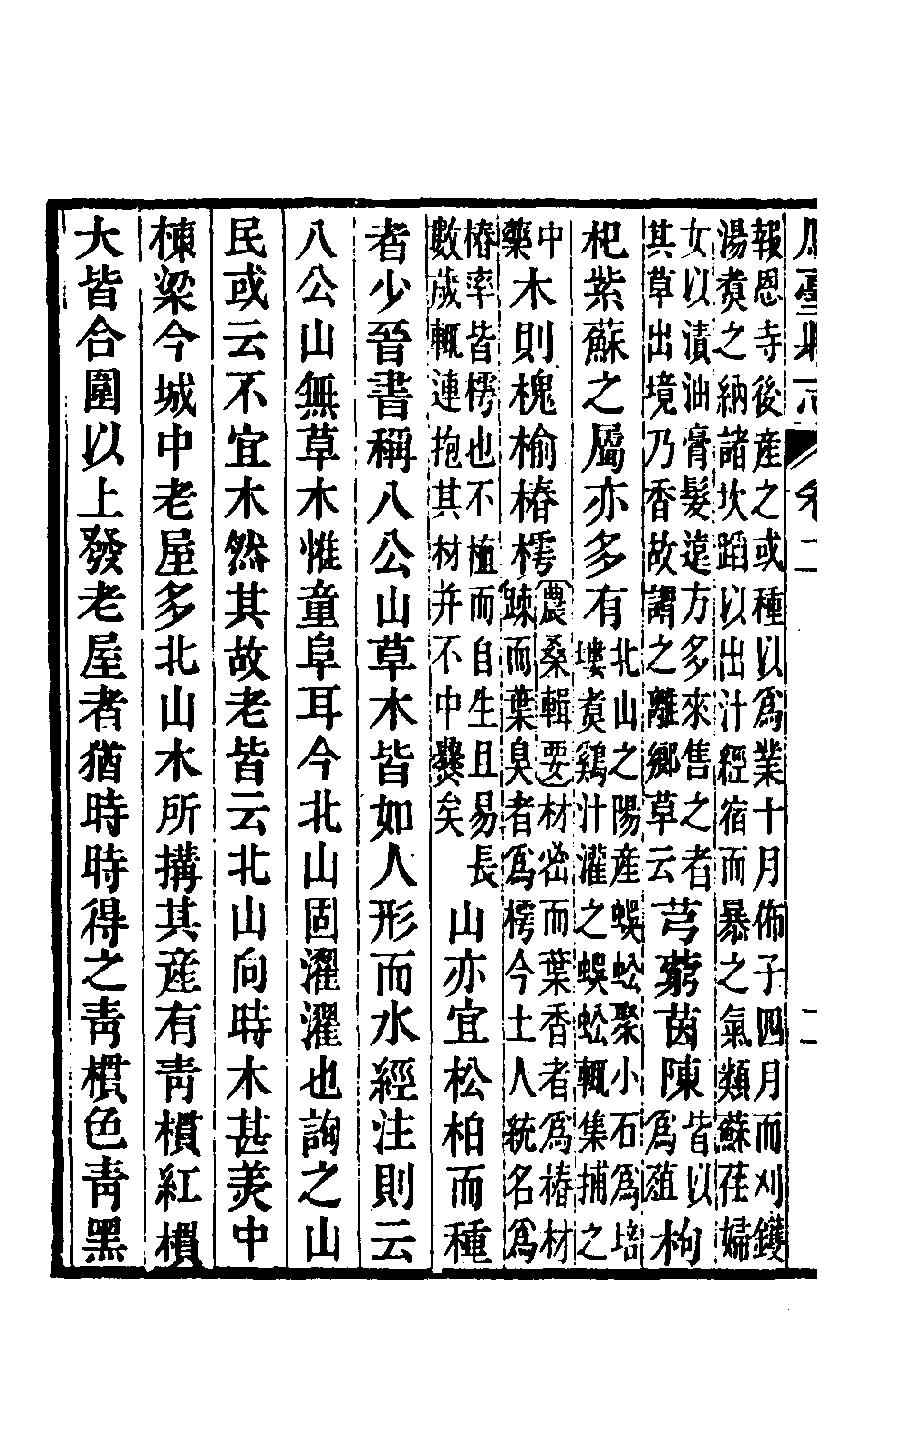 鳳臺縣志 卷二 二
報恩寺後產之或種以爲業十月佈子四月而刈鑊
湯煑之納諸坎蹈以出汁經宿而暴之氣類蘇荏婦
女以漬油膏髮遠方多來售之者
其草出境乃香故謂之離鄉草云
芎藭茵陳皆以爲殖枸
杞紫蘇之屬亦多有
北山之陽產蜈蚣聚小石爲培
塿煑鷄汁灌之蜈蚣輒集捕之
中藥木則槐榆椿樗
農桑輯要材密而葉香者爲椿材
踈而葉臭者爲樗今土人統名爲
椿率皆樗也不植而自生且易長
數歲輒連抱其材并不中爨矣
山亦宜松柏而種
者少晉書稱八公山草木皆如人形而水經注則云
八公山無草木惟童阜耳今北山固濯濯也詢之山
民或云不宜木然其故老皆云北山向時木甚美中
棟梁今城中老屋多北山木所搆其產有靑樌紅樌
大皆合圍以上發老屋者猶時時得之靑樌色靑黑